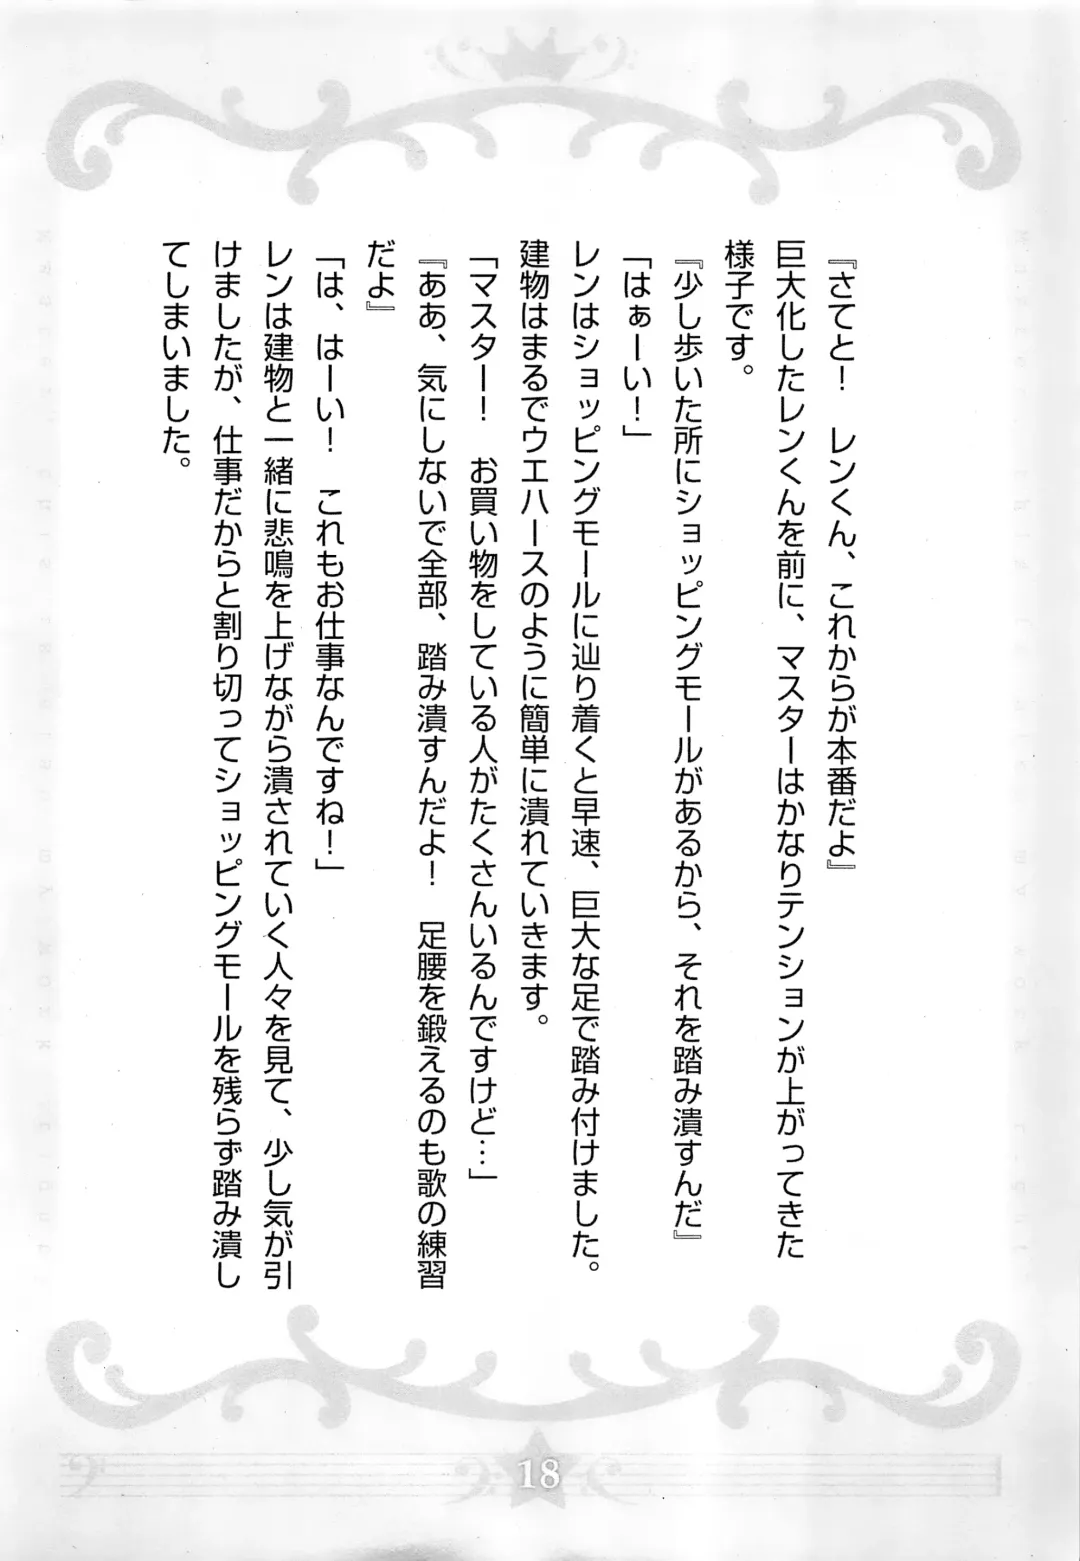 『さてと！　レンくん、これからが本番だよ』
巨大化したレンくんを前に、マスターはかなりテンションが上がってきた
様子です。
『少し歩いた所にショッピングモールがあるから、それを踏み潰すんだ』
「はぁーい！」
レンはショッピングモールに辿り着くと早速、巨大な足で踏み付けました。
建物はまるでウエハースのように簡単に潰れていきます。
「マスター！　お買い物をしている人がたくさんいるんですけど…」
『ああ、気にしないで全部、踏み潰すんだよ！　足腰を鍛えるのも歌の練習
だよ』
「は、はーい！　これもお仕事なんですね！」
レンは建物と一緒に悲鳴を上げながら潰されていく人々を見て、少し気が引
けましたが、仕事だからと割り切ってショッピングモールを残らず踏み潰し
てしまいました。
18